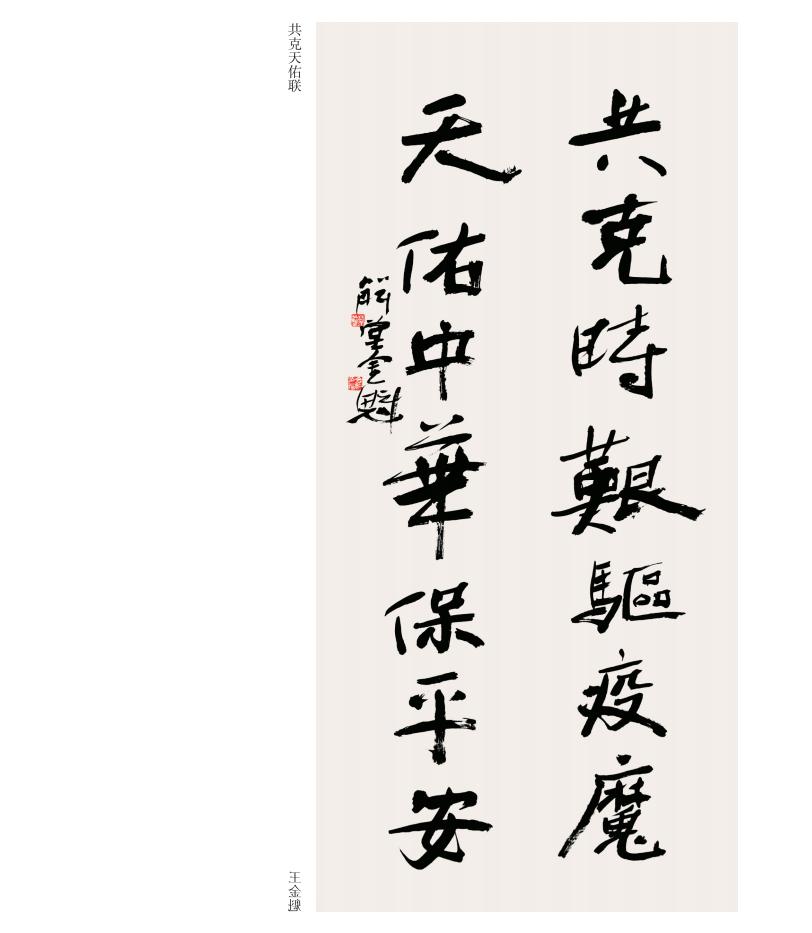 共克天佑联
共克時艱驅疫魔
天佑中華保平安
金魁
王金魁